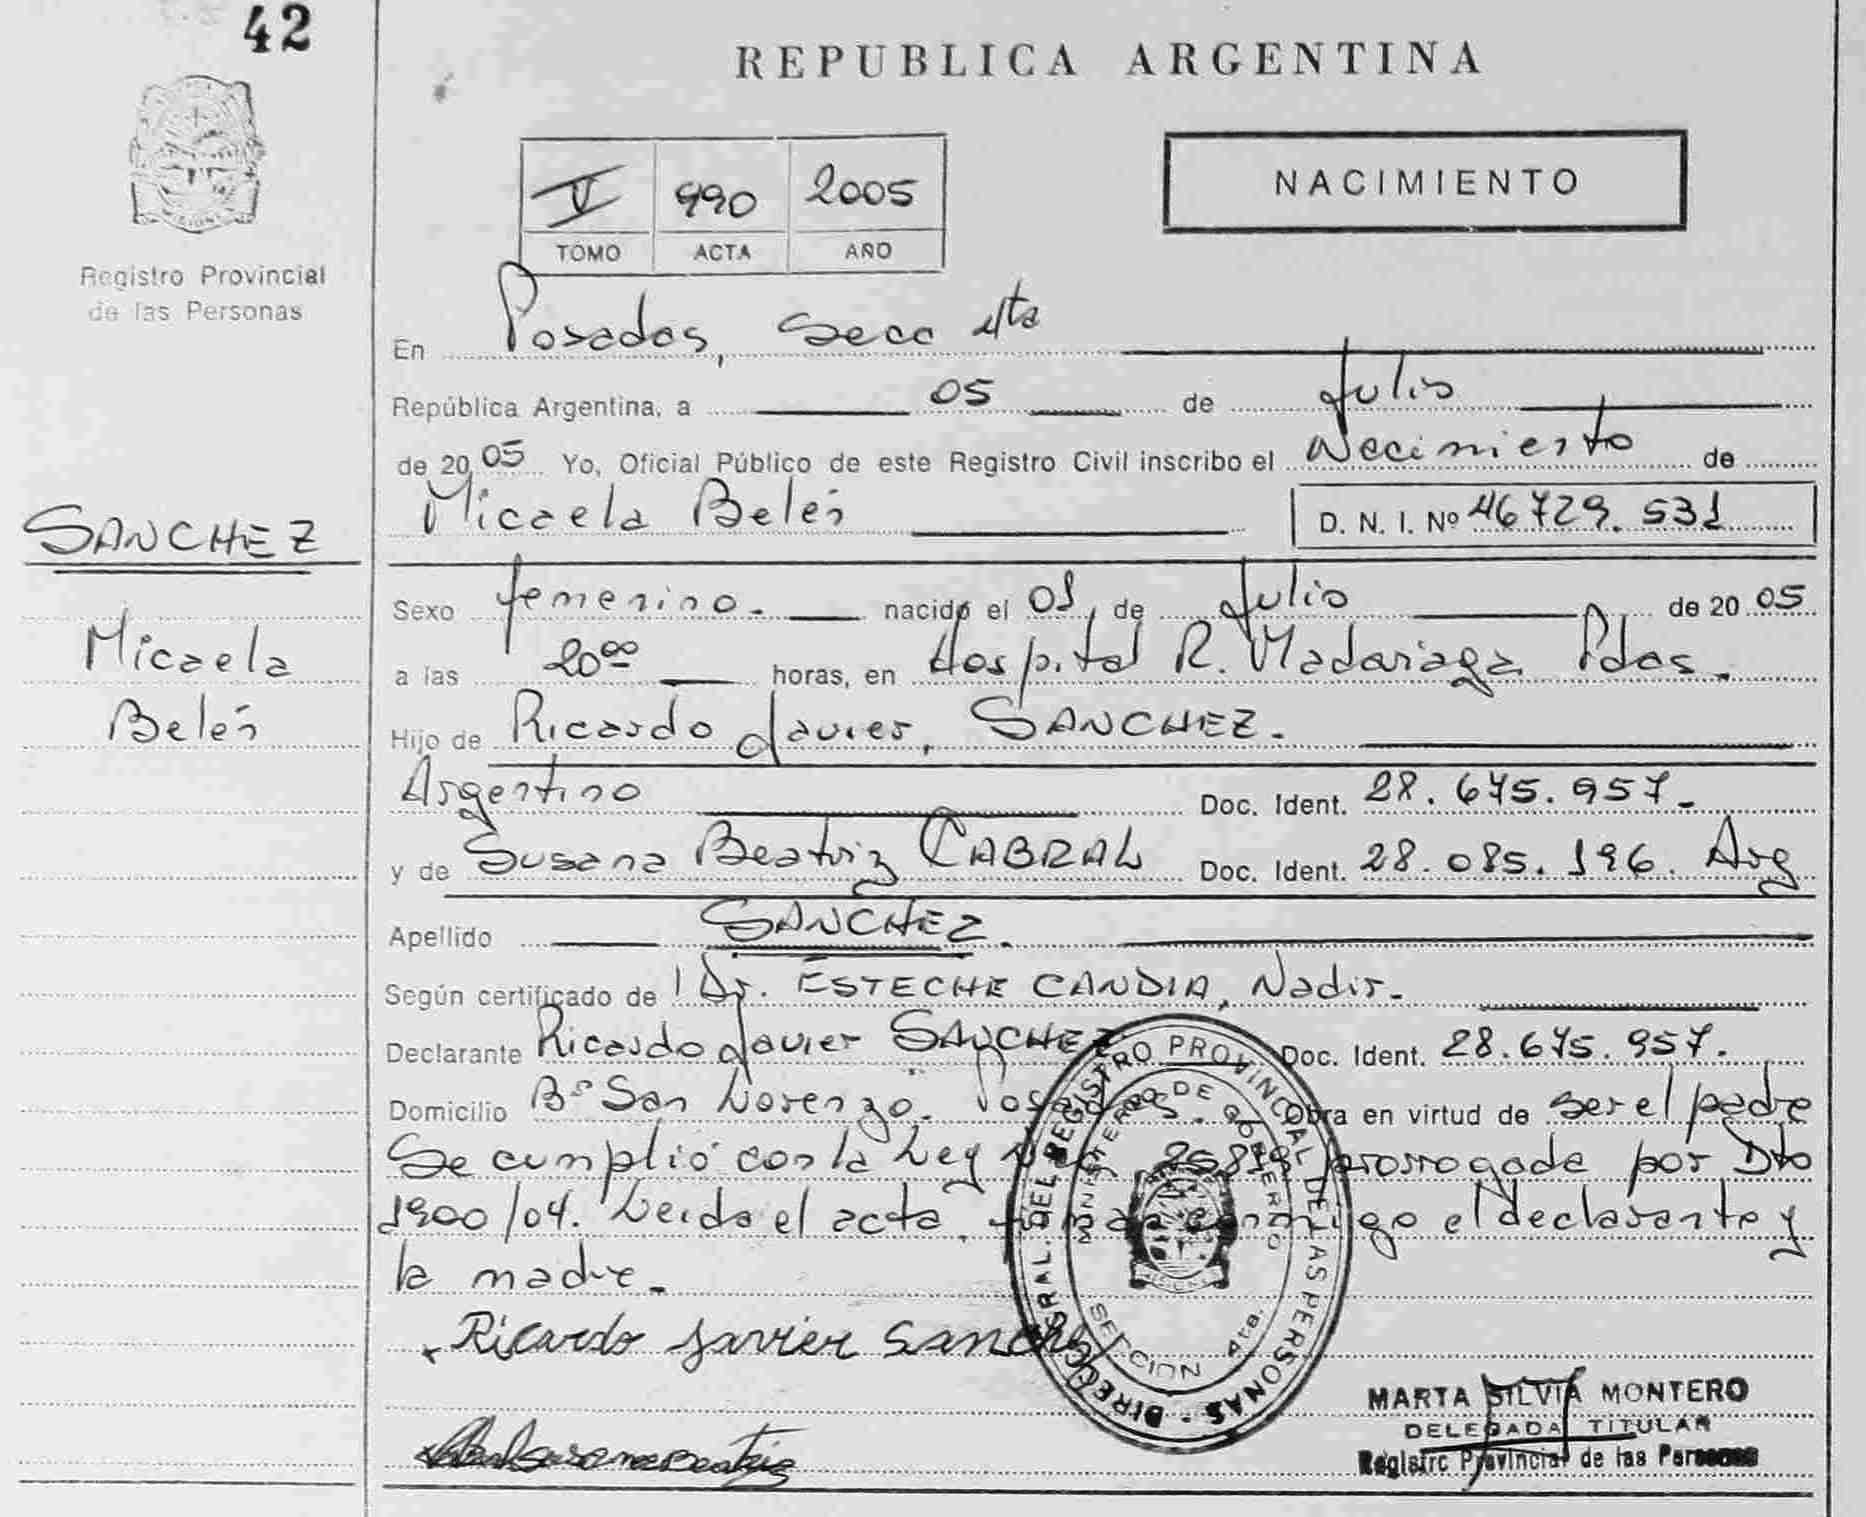 42
REPUBLICA ARGENTINA
NACIMIENTO
V 990 2005
TOMO ACTA AÑO
Registro Provincial
de las Personas
En Posadas, Secc 4ta
República Argentina, a 05 de Julio
de 2005 Yo, Oficial Público de este Registro Civil inscribo el Nacimiento de
Micaela Belén D. N. I. Nº 46729.531
SANCHEZ
Micaela
Belén
Sexo femenino. nacido el 01, de Julio de 2005
a las 20 00 horas, en Hospital R. Madariaga Pdas.
Hijo de Ricardo Javier, SANCHEZ.
Argentino Doc. Ident. 28.675.957.
y de Susana Beatriz CABRAL Doc. Ident. 28.085.196. Arg
Apellido SANCHEZ.
Según certificado de Dr. ESTECHE CANDIA, Nadir.
Declarante Ricardo Javier SANCHEZ Doc. Ident. 28.675.957.
Domicilio Bº San Lorenzo. Posadas. Obra en virtud de ser el padre
Se cumplió con la Ley 25819 prorrogada por Dto
1900/04. Leida el acta, firman conmigo el declarante y
la madre.
Ricardo Javier Sanchez
Susana Beatriz
DIREC GRAL. DEL REGISTRO PROVINCIAL DE LAS PERSONAS
MINISTERIO DE GOBIERNO
SECCION 4ta.
MARTA SILVIA MONTERO
DELEGADA TITULAR
Registro Provincial de las Personas